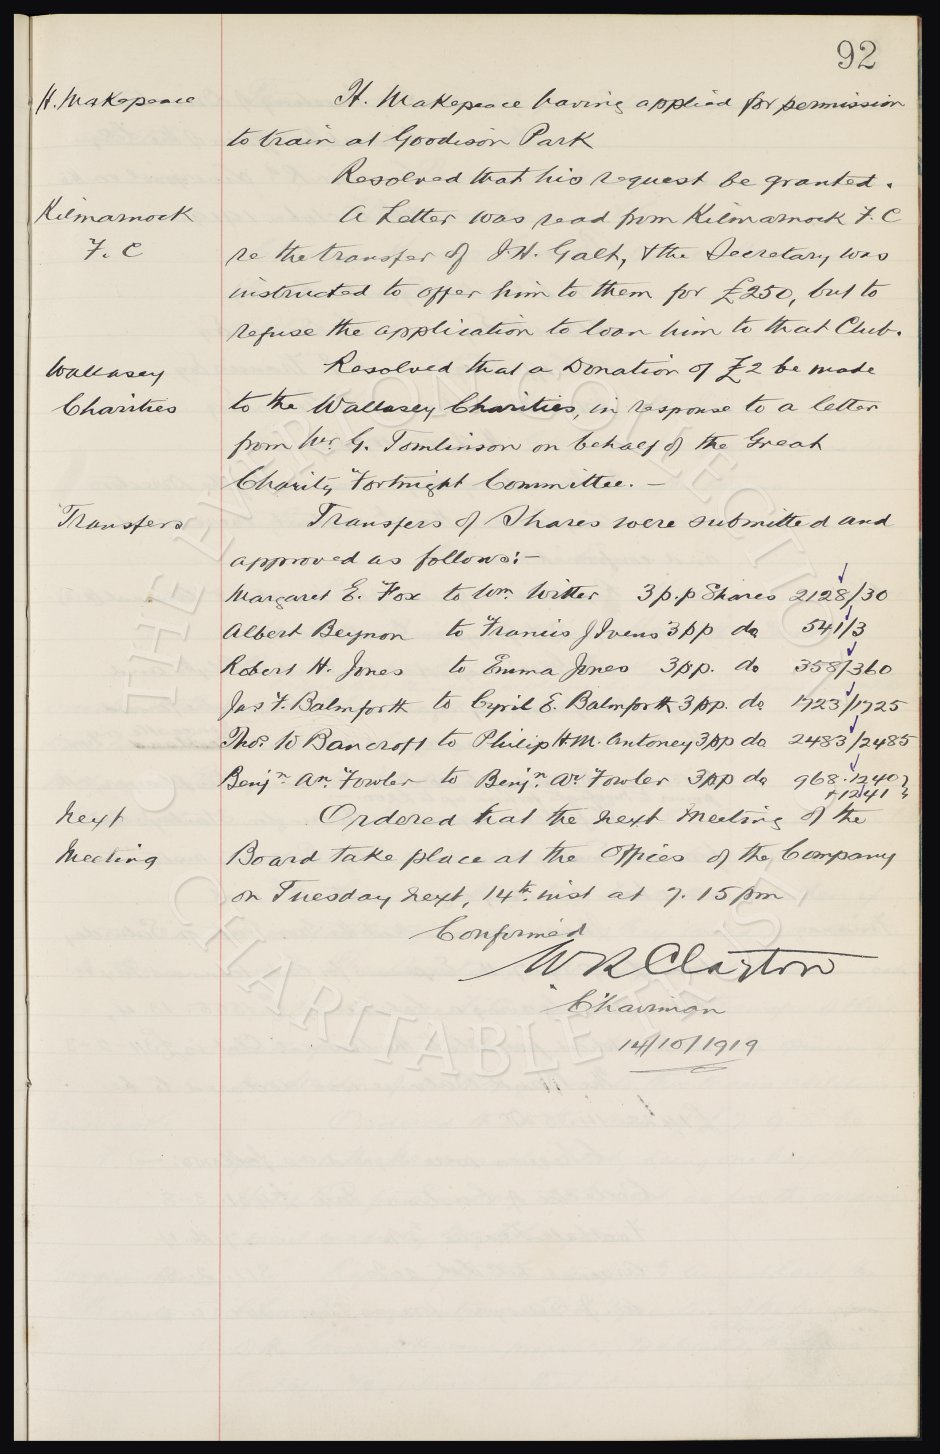 92
H. Makepeace
H. Makepeace having applied for permission
to train at Goodison Park
Resolved that his request be granted.
Kilmarnock
F. C
A Letter was read from Kilmarnock F. C
re the transfer of J. H. Galt, & the Secretary was
instructed to offer him to them for £250, but to
refuse the application to loan him to that Club.
Wallasey
Charities
Resolved that a Donation of £2 be made
to the Wallasey Charities, in response to a letter
from Mr. G. Tomlinson on behalf of the Great
Charity Fortnight Committee. —
Transfers
Transfers of Shares were submitted and
approved as follows:—
Margaret E. Fox to Wm. Witter 3 p.p Shares 2128/30
Albert Beynon to Francis J Ivens 3 pp do 541/3
Robert H. Jones to Emma Jones 3 pp. do 358/360
Jas F. Balmforth to Cyril E. Balmforth 3 pp. do 1723/1725
Thos W Bancroft to Philip H. M. Antoney 3 pp do 2483/2485
Benjn. Wm. Fowler to Benjn. Wm. Fowler 3 pp do 968. 1240
+ 1241
Next
Meeting
Ordered that the next Meeting of the
Board take place at the Offices of the Company
on Tuesday next, 14th. inst at 7. 15 pm
Confirmed
W R Clayton
Chairman
14/10/1919
THE EVERTON COLLECTION
CHARITABLE TRUST